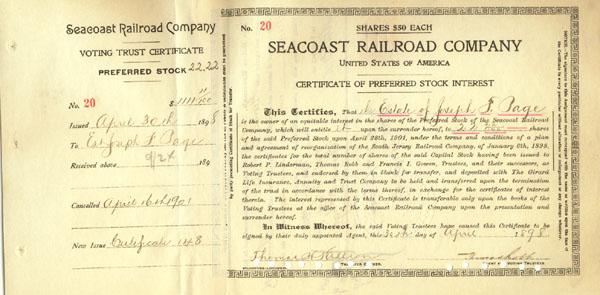 Seacoast Railroad Company
VOTING TRUST CERTIFICATE
PREFERRED STOCK 22.22
No. 20
Issued April 30th 1898
To Est Joseph F. Page
Received above 189
Cancelled April 16th 1901
New Issue Certificate 148
No. 20
SHARES $50 EACH
SEACOAST RAILROAD COMPANY
UNITED STATES OF AMERICA
CERTIFICATE OF PREFERRED STOCK INTEREST
This Certifies, That the Estate of Joseph F. Page
is the owner of an equitable interest in the shares of the Preferred Stock of the Seacoast Railroad
Company, which will entitle it upon the surrender hereof, to shares
of the said Preferred Stock upon April 28th, 1901, under the terms and conditions of a plan
and agreement of reorganization of the South Jersey Railroad Company, of January 6th, 1898,
the certificates for the total number of shares of the said Capital Stock having been issued to
Robert P. Linderman, Thomas Robb and Francis I. Gowen, Trustees, and their successors, as
Voting Trustees, and endorsed by them in blank for transfer, and deposited with The Girard
Life Insurance, Annuity and Trust Company to be held and transferred upon the termination
of the trust in accordance with the terms hereof, in exchange for the certificates of interest
therein. The interest represented by this Certificate is transferable only upon the books of the
Voting Trustees at the office of the Seacoast Railroad Company upon the presentation and
surrender hereof.
In Witness Whereof, the said Voting Trustees have caused this Certificate to be
signed by their duly appointed Agent, this 30th day of April 1898